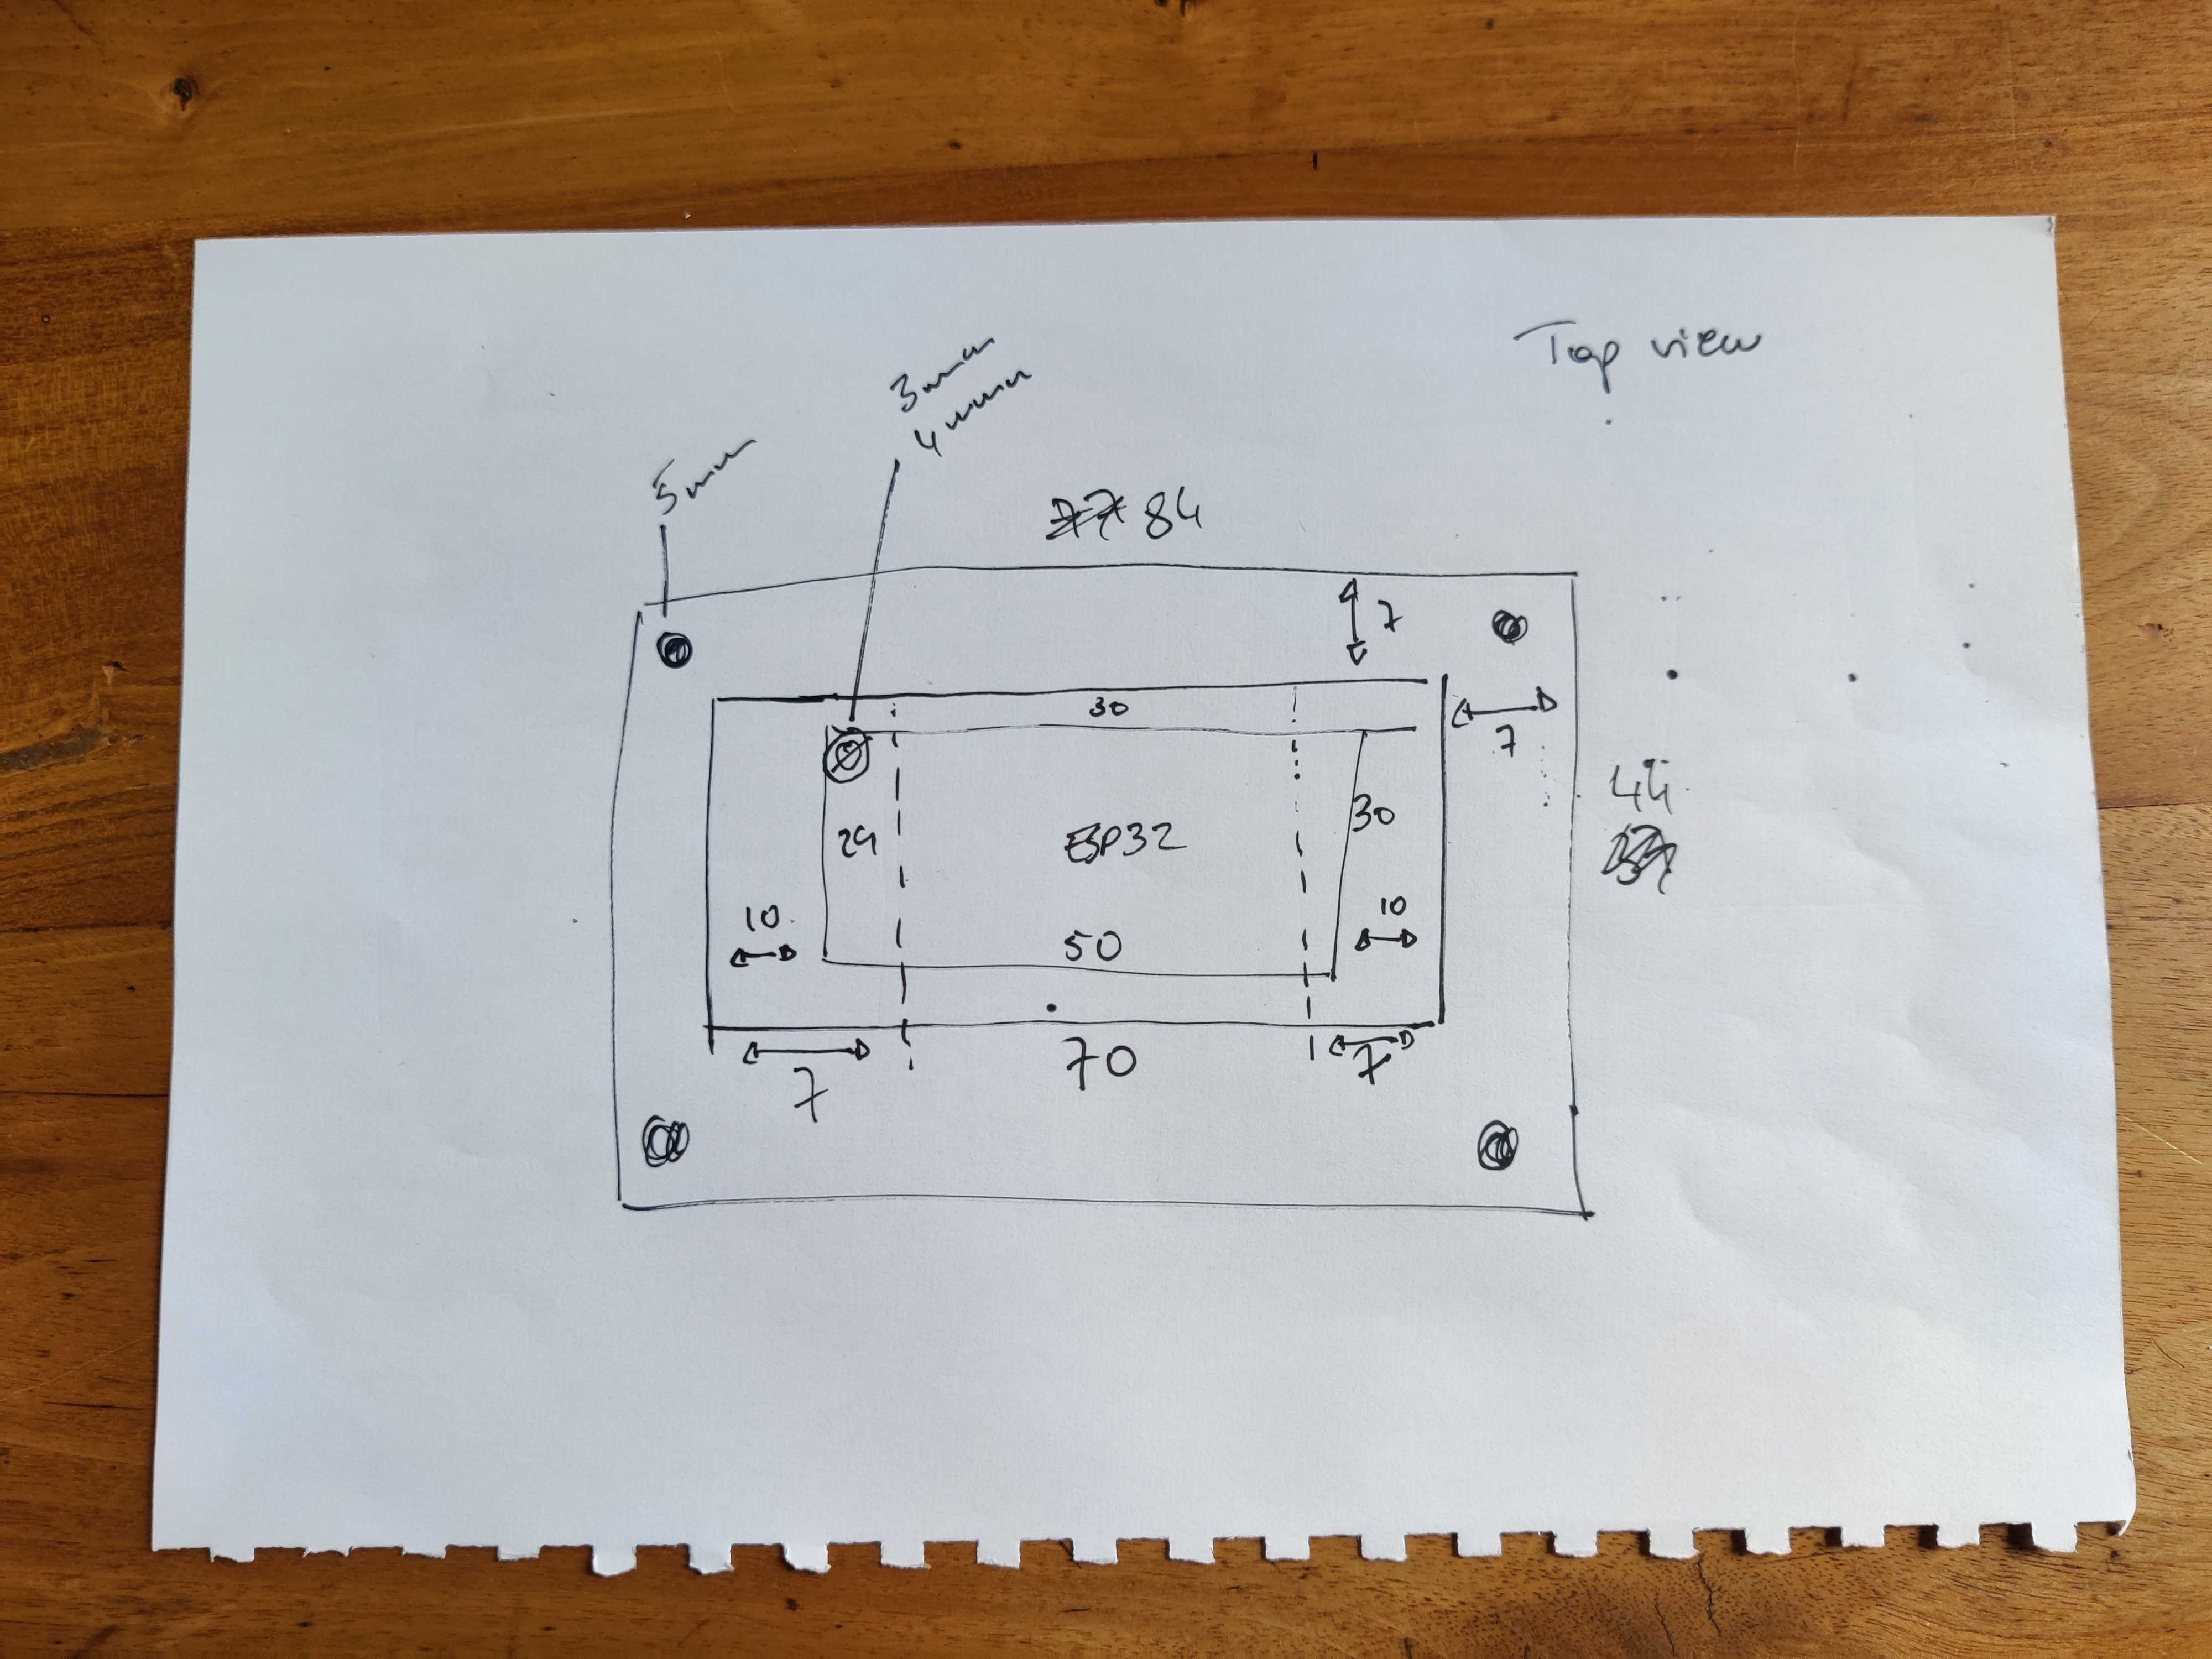 Top view
3mm
4mm
5mm
84
7
30
7
44
29
ESP32
30
10
50
10
7
70
7